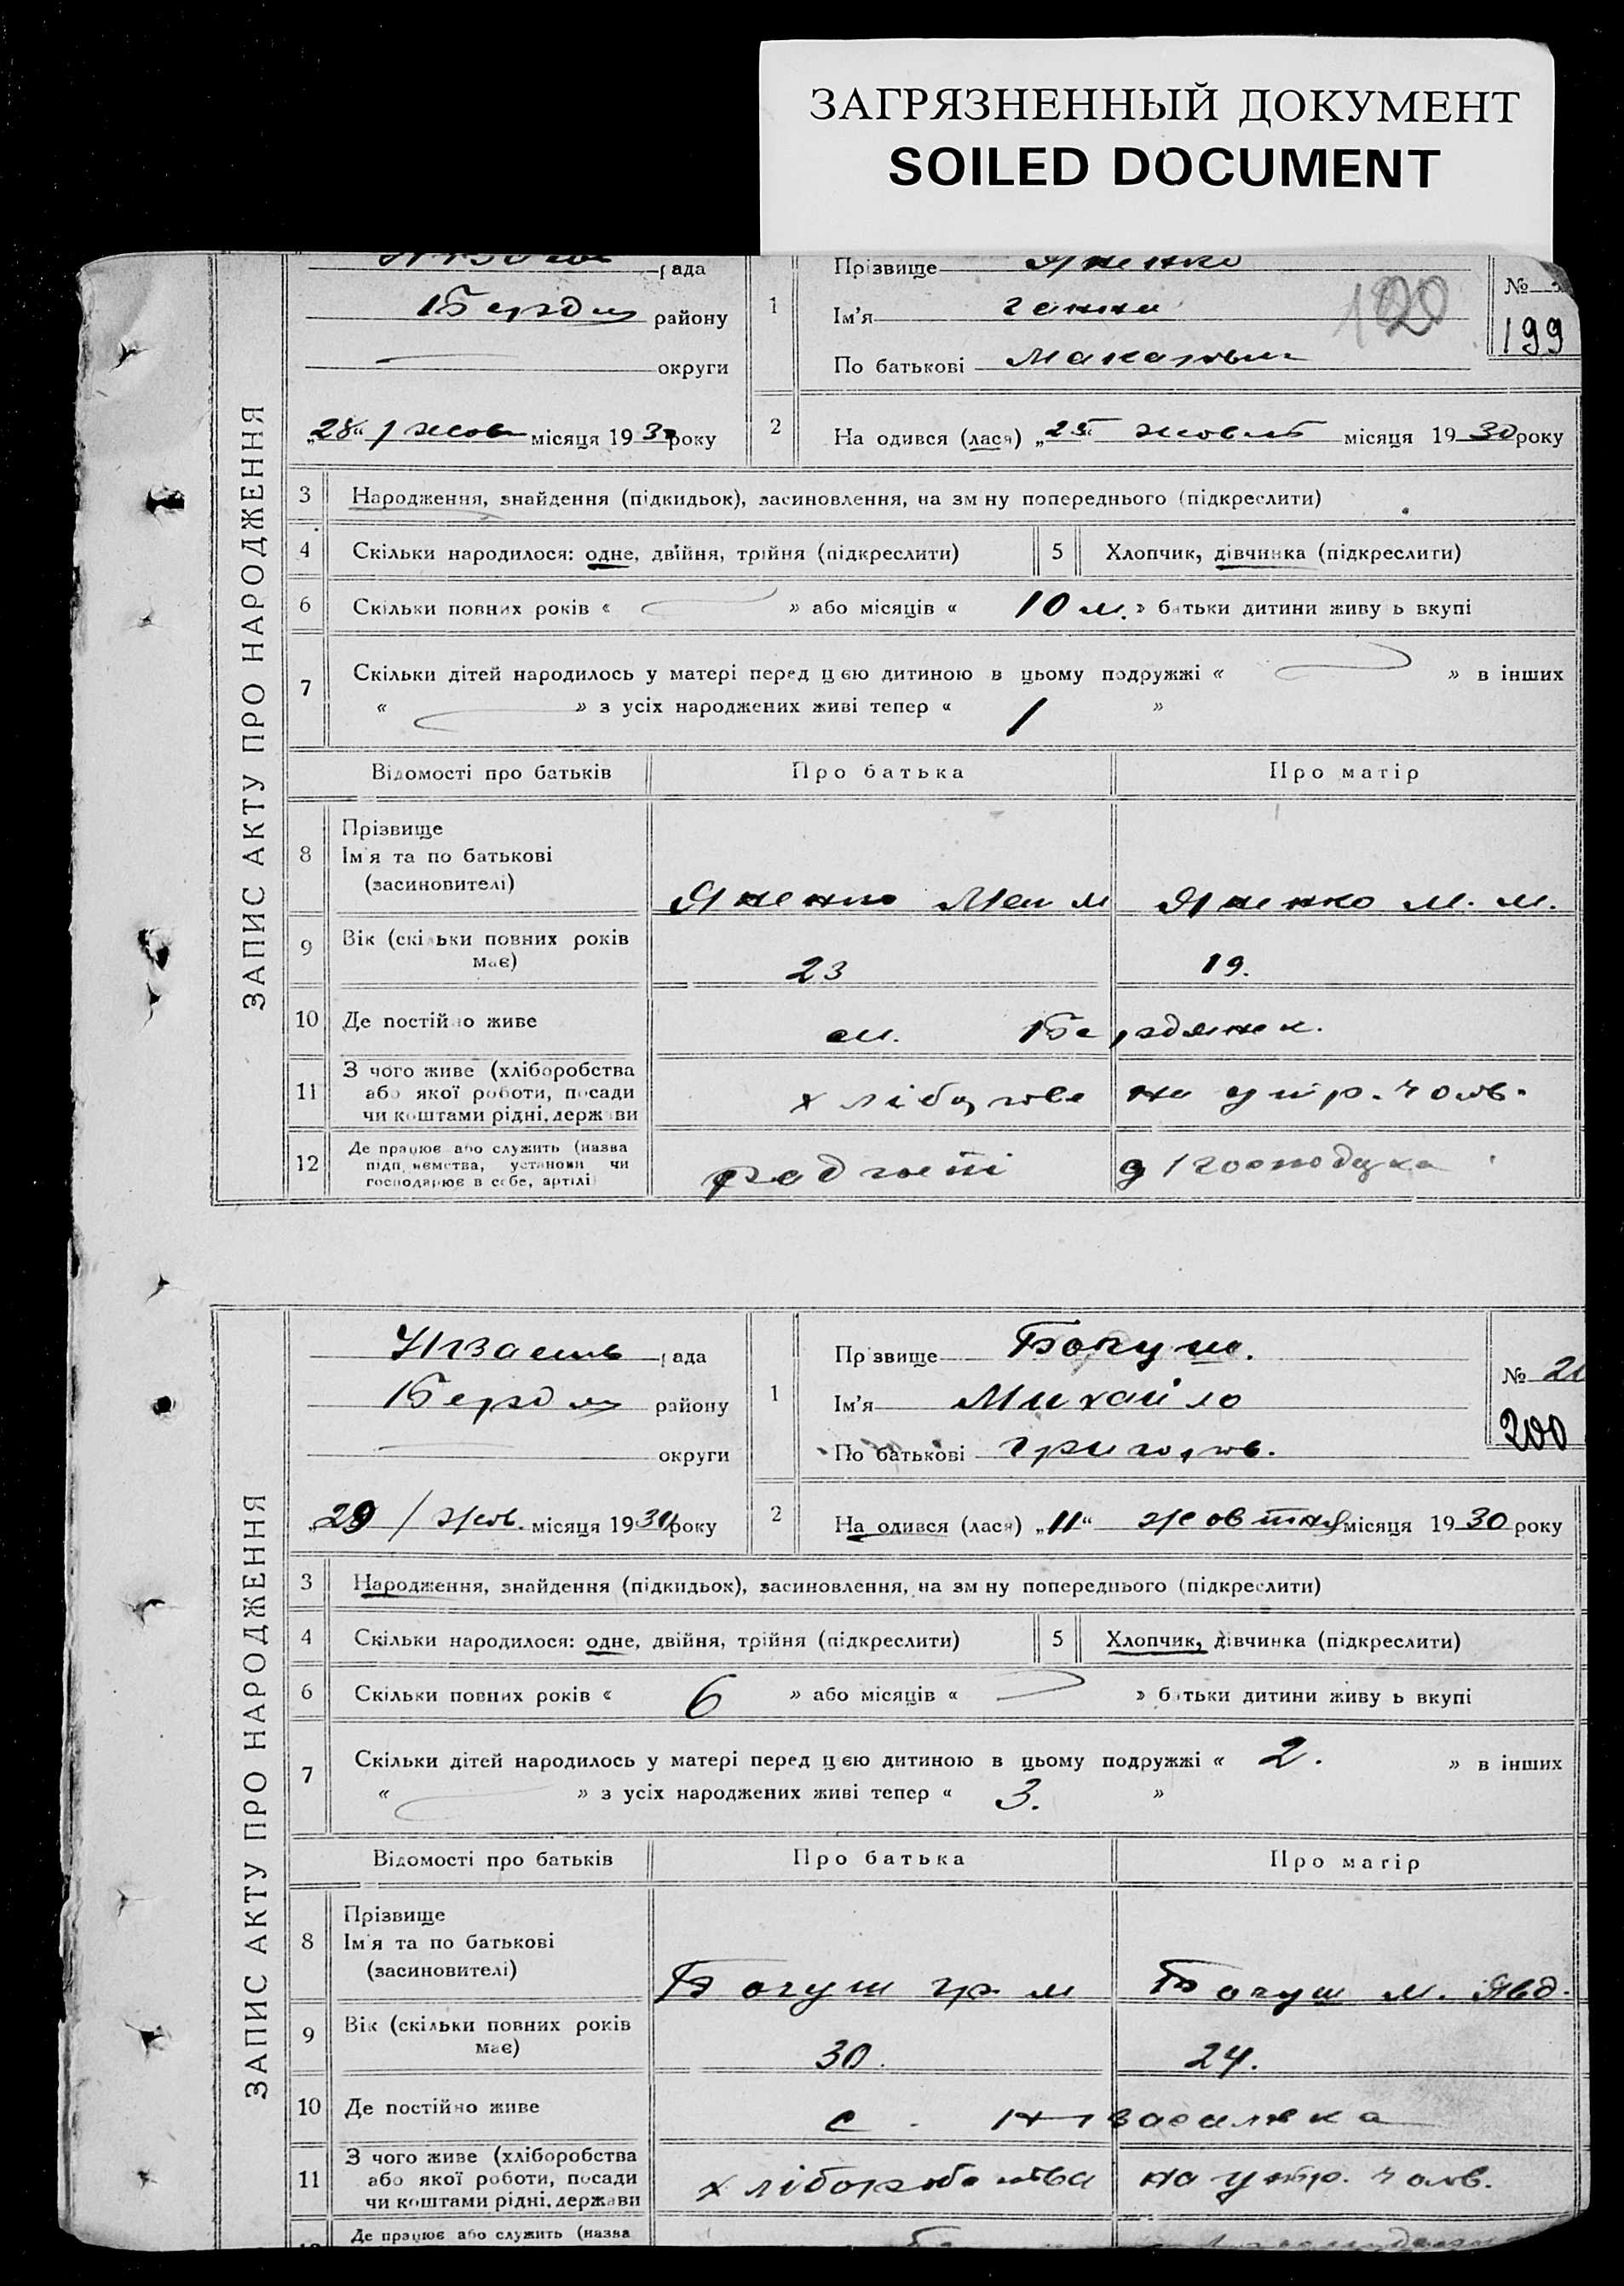 ЗАГРЯЗНЕННЫЙ ДОКУМЕНТ
SOILED DOCUMENT
ЗАПИС АКТУ ПРО НАРОДЖЕННЯ
рада
Бердян району
округи
„28“ жовт місяця 1930 року
1 Прізвище
Ім'я Ганна
По батькові Макаров
120
№
199
2 На одився (лася) „25“ жовт місяця 1930 року
3 Народження, знайдення (підкидьок), засиновлення, на зм ну попереднього (підкреслити)
4 Скільки народилося: одне, двійня, трійня (підкреслити) 5 Хлопчик, дівчинка (підкреслити)
6 Скільки повних років « » або місяців « 10 м. » батьки дитини живу ь вкупі
7 Скільки дітей народилось у матері перед цією дитиною в цьому подружжі « » в інших
« » з усіх народжених живі тепер « 1 »
Відомості про батьків Про батька Про матір
8 Прізвище
Ім'я та по батькові
(засиновителі)
м. м.
9 Вік (скільки повних років має) 23 19.
10 Де постійно живе м. Бердянск.
11 З чого живе (хліборобства або якої роботи, посади чи коштами рідні, держави хлібороб на утр. чолов.
12 Де працює або служить (назва підп иємства, установи чи господарює в себе, артілі)
ЗАПИС АКТУ ПРО НАРОДЖЕННЯ
Н-Васил рада
Бердян району
округи
„29“ жов. місяця 1930 року
1 Пр звище Богуш.
Ім'я Михайло
По батькові Григоров.
№ 20
200
2 На одився (лася) „11“ жовтня місяця 1930 року
3 Народження, знайдення (підкидьок), засиновлення, на зм ну попереднього (підкреслити)
4 Скільки народилося: одне, двійня, трійня (підкреслити) 5 Хлопчик, дівчинка (підкреслити)
6 Скільки повних років « 6 » або місяців « » батьки дитини живу ь вкупі
7 Скільки дітей народилось у матері перед цією дитиною в цьому подружжі « 2. » в інших
« » з усіх народжених живі тепер « 3. »
Відомості про батьків Про батька Про матір
8 Прізвище
Ім'я та по батькові
(засиновителі)
Богуш Гр. м Богуш м. Явд.
9 Вік (скільки повних років має) 30. 24.
10 Де постійно живе с. Н-Василівка
11 З чого живе (хліборобства або якої роботи, посади чи коштами рідні, держави хліборобства на утр. чолов.
Де працює або служить (назва